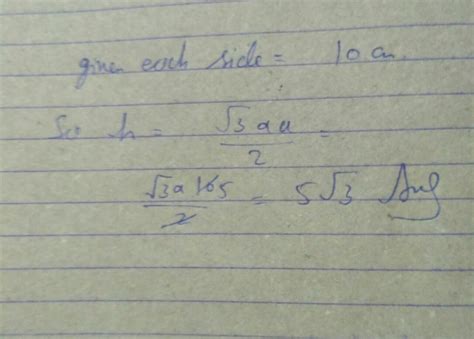 given each side = 10 cm.
So h = √3 × a / 2 =
√3 × 10 5 / 2 = 5√3 Ans